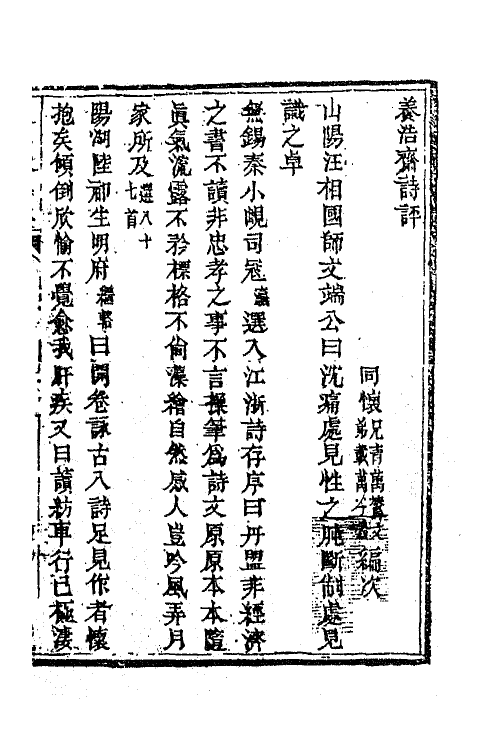 養浩齋詩評
同懷兄青萬 弟載萬 編次
山陽汪相國師文端公曰沈痛處見性之肫斷制處見
識之卓
無錫秦小峴司冦瀛選入江浙詩存序曰丹盟非經濟
之書不讀非忠孝之事不言操筆爲詩文原原本本隨
眞氣流露不矜標格不尚藻繪自然感人豈吟風弄月
家所及選八十七首
陽湖陸祁生明府繼輅曰開卷詠古八詩足見作者懷
抱矣傾倒欣愉不覺愈我肝疾又曰讀紡車行已極淒